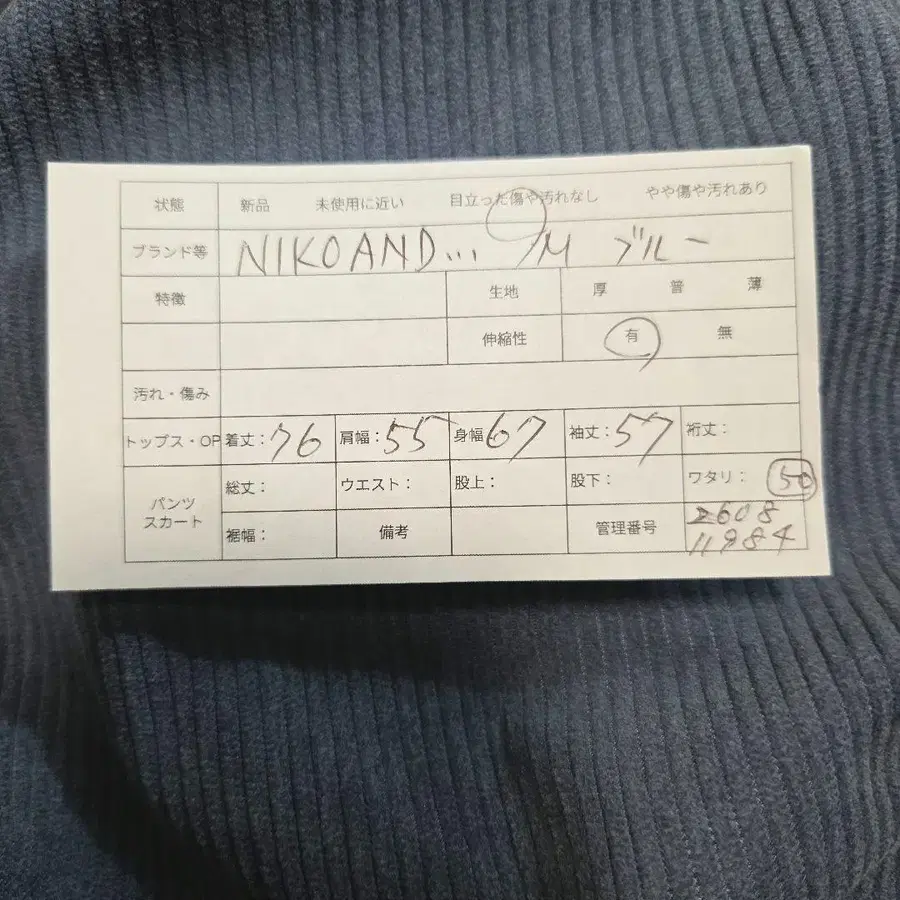 状態 新品 未使用に近い 目立った傷や汚れなし やや傷や汚れあり
ブランド等 NIKOAND... M ブルー
特徴 生地 厚 普 薄
伸縮性 有 無
汚れ・傷み
トップス・OP 着丈：76 肩幅：55 身幅67 袖丈：57 裄丈：
パンツ スカート 総丈： ウエスト： 股上： 股下： ワタリ： 50
裾幅： 備考 管理番号 2608
11984